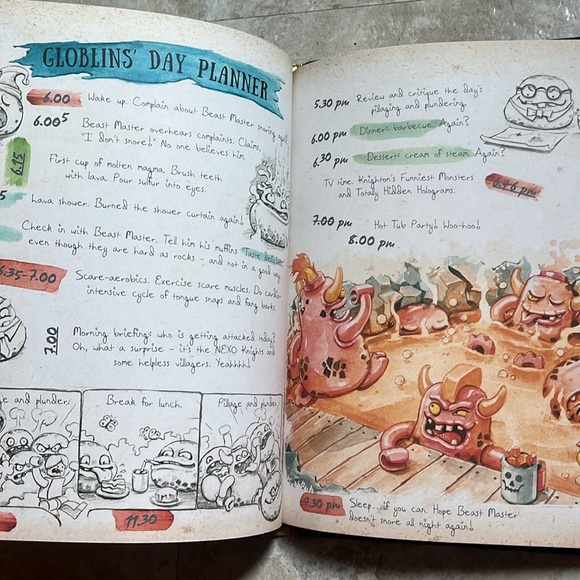 GLOBLINS' DAY PLANNER
6.00 Wake up. Complain about Beast Master snoring again!
6.00⁵ Beast Master overhears complaints. Claims,
"I don't snore!" No one believes him.
6.15 First cup of molten magma. Brush teeth
with lava. Pour sulfur into eyes.
Lava shower. Burned the shower curtain again!
Check in with Beast Master. Tell him his muffins taste delicious
even though they are hard as rocks - and not in a good way.
6.35-7.00 Scare-aerobics. Exercise scare muscles. Do
intensive cycle of tongue snaps and fang barks.
7.00 Morning briefing: who is getting attacked today?
Oh, what a surprise - it's the NEXO Knights and
some helpless villagers. Yeahhhh!
and plunder.
Break for lunch.
Pillage and
11.30
5.30 pm Review and critique the day's
pillaging and plundering.
6.00 pm Dinner: barbecue. Again?
6.30 pm Dessert: cream of steam. Again?
TV time. Knighton's Funniest Monsters
and Totally Hidden Holograms.
7.00 pm Hot Tub Party! Woo-hoo!
8.00 pm
9.30 pm Sleep...if you can. Hope Beast Master
doesn't snore all night again!